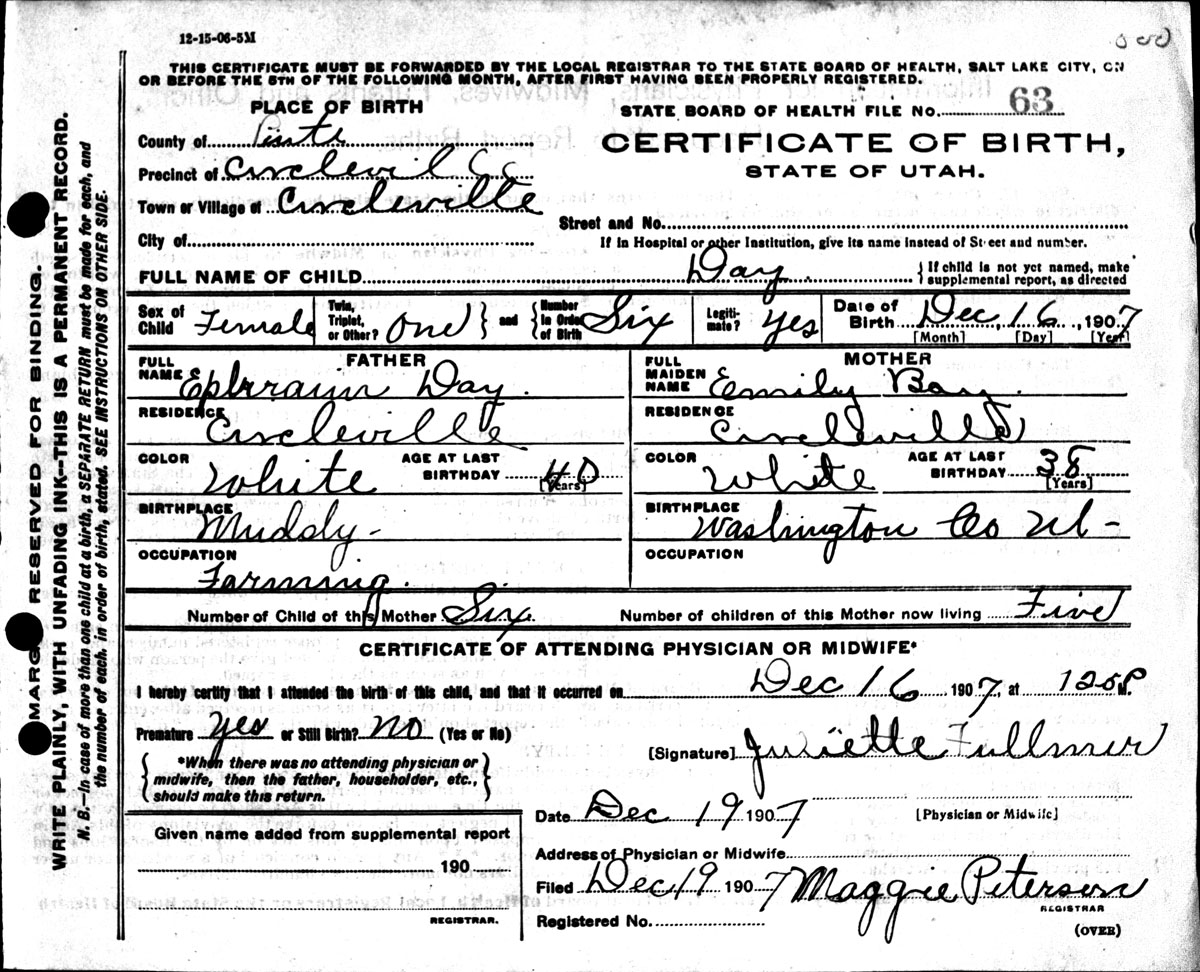 12-15-06-5M
THIS CERTIFICATE MUST BE FORWARDED BY THE LOCAL REGISTRAR TO THE STATE BOARD OF HEALTH, SALT LAKE CITY, ON
OR BEFORE THE 5TH OF THE FOLLOWING MONTH, AFTER FIRST HAVING BEEN PROPERLY REGISTERED.
PLACE OF BIRTH
STATE BOARD OF HEALTH FILE No. 63
County of
CERTIFICATE OF BIRTH,
STATE OF UTAH.
Precinct of Circlevil
Town or Village of Circleville
Street and No.
City of
If in Hospital or other Institution, give its name instead of Street and number.
FULL NAME OF CHILD Day
{If child is not yet named, make supplemental report, as directed
Sex of Child Female
Twin, Triplet, or Other? One } and { Number in Order of Birth Six
Legitimate? yes
Date of Birth Dec, 16, 1907
[Month] [Day] [Year]
FATHER
FULL NAME Ephraim Day
RESIDENCE Circleville
COLOR White AGE AT LAST BIRTHDAY 40 [Years]
BIRTHPLACE Muddy-
OCCUPATION Farming.
MOTHER
FULL MAIDEN NAME Emily Bay
RESIDENCE Circleville
COLOR White AGE AT LAST BIRTHDAY 38 [Years]
BIRTHPLACE Washington Co Ut-
OCCUPATION
Number of Child of this Mother Six Number of children of this Mother now living Five
CERTIFICATE OF ATTENDING PHYSICIAN OR MIDWIFE*
I hereby certify that I attended the birth of this child, and that it occurred on Dec 16 1907, at 120 P M.
Premature yes or Still Birth? NO (Yes or No)
{ *When there was no attending physician or midwife, then the father, householder, etc., should make this return. }
[Signature] Juliette Fullmer
Date Dec 19 1907 [Physician or Midwife]
Given name added from supplemental report
190
REGISTRAR.
Address of Physician or Midwife
Filed Dec 19 1907 Maggie Peterson
REGISTRAR
Registered No.
(OVER)
MARGIN RESERVED FOR BINDING.
WRITE PLAINLY, WITH UNFADING INK--THIS IS A PERMANENT RECORD.
N. B.--In case of more than one child at a birth, a SEPARATE RETURN must be made for each, and
the number of each, in order of birth, stated. SEE INSTRUCTIONS ON OTHER SIDE.